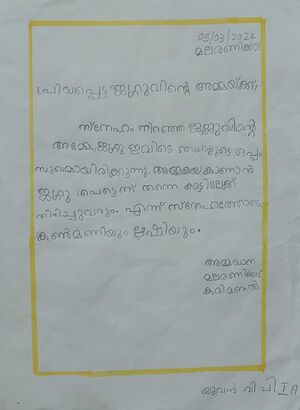 05/03/2024
മലരണിക്കാട്
പ്രിയപ്പെട്ട ജഗ്ഗുവിന്റെ അമ്മയ്ക്ക്,
സ്നേഹം നിറഞ്ഞ ജഗ്ഗുവിന്റെ
അമ്മേ, ജഗ്ഗു ഇവിടെ ഞങ്ങളുടെ ഒപ്പം
സുഖമായിരിക്കുന്നു. അമ്മയെകാണാൻ
ജഗ്ഗു പെട്ടെന്ന് തന്നെ കാട്ടിലേക്ക്
തിരിച്ചുവരും. എന്ന് സ്നേഹത്തോടെ
കൺമണിയും ഋഷിയും.
അമ്മയാന
മലരണിക്കാട്
കരിമണൽ
യുവൻ വി പി I A